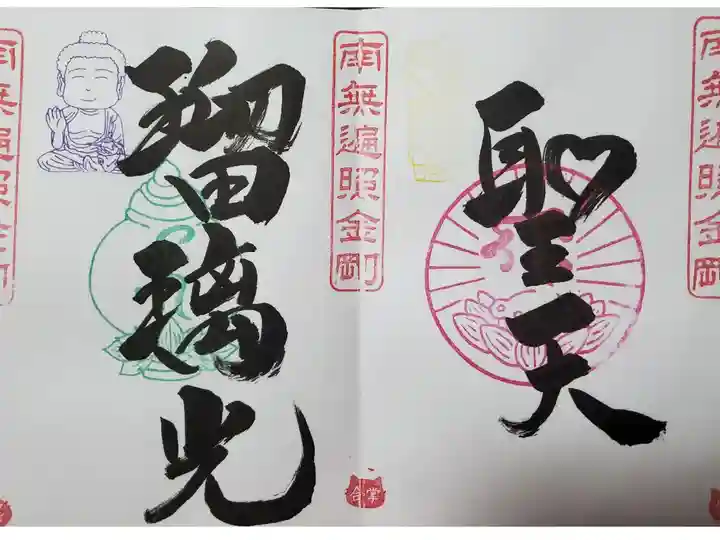 南無遍照金剛
聖天
合掌
南無遍照金剛
瑠璃光
南無遍照金剛
合掌